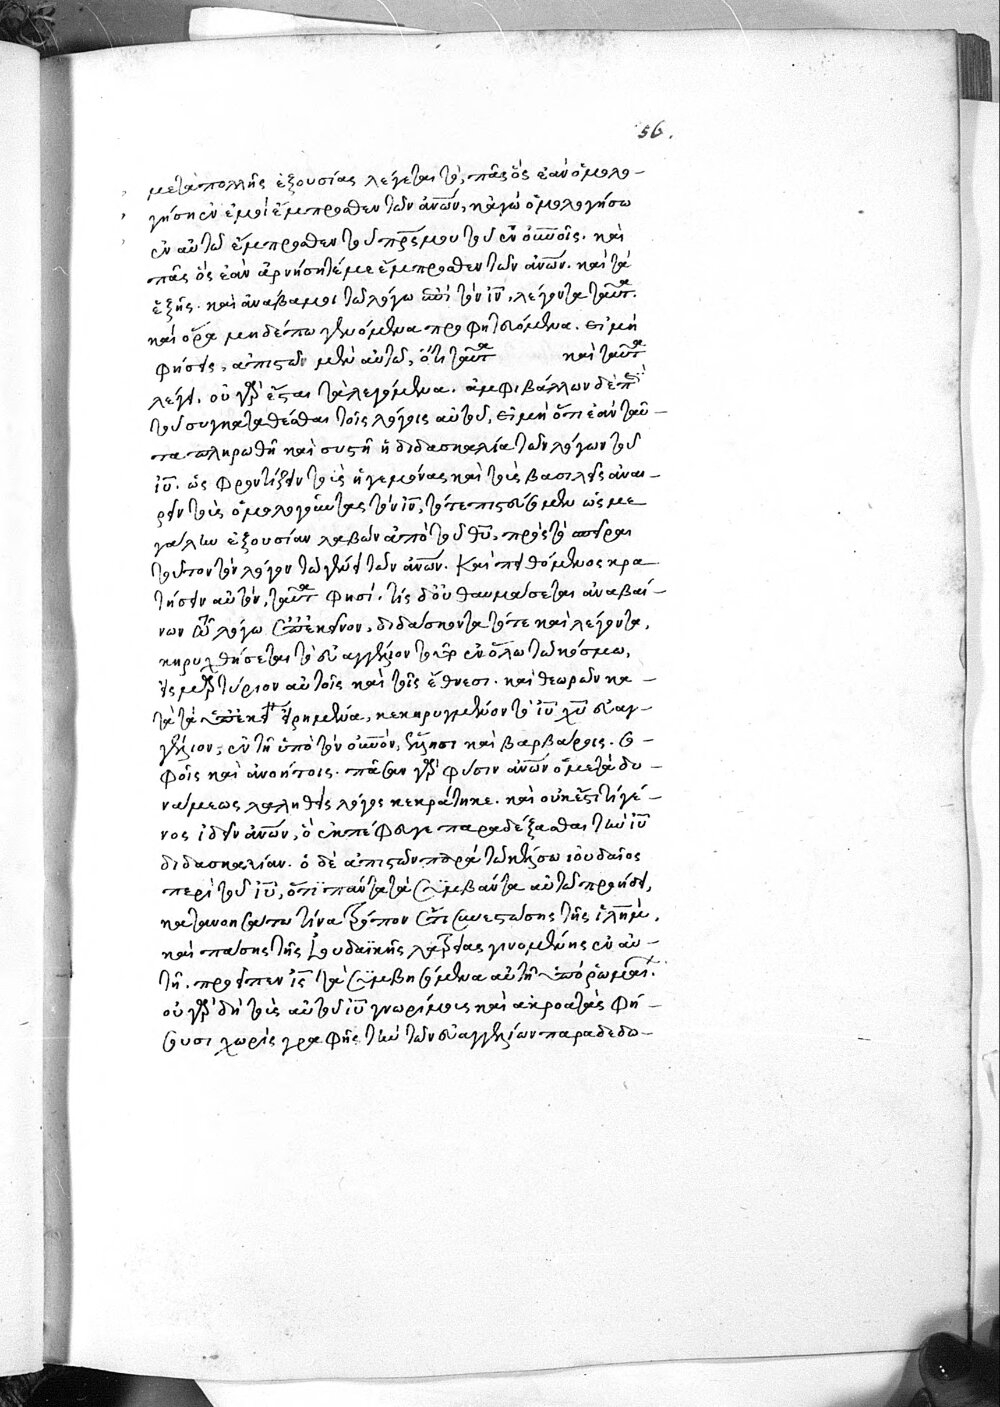 56.
μετὰ πολλῆς ἐξουσίας λέγεται τό, πᾶς ὃς ἐὰν ὁμολο-
γήσῃ ἐν ἐμοὶ ἔμπροσθεν τῶν ἀν̅ων, κἀγὼ ὁμολογήσω
ἐν αὐτῷ ἔμπροσθεν τοῦ πρ̅ς μου τοῦ ἐν οὐν̅οῖς. καὶ
πᾶς ὃς ἐὰν ἀρνήσηταί με ἔμπροσθεν τῶν ἀν̅ων. καὶ τὰ
ἑξῆς. καὶ ἀνάβα μοι τῷ λόγῳ ἐπὶ τὸν ιν̅, λέγοντα ταῦτα.
καὶ ὅρα μηδέπω γενόμενα προφητευόμενα. εἰ μὴ
φήσεις, ἀπιστῶν μὲν αὐτῷ, ὅτι ταῦτα καὶ ταῦτα
λέγει. οὐ γὰρ ἔσται τὰ λεγόμενα. ἀμφιβάλλων δὲ περὶ
τοῦ συγκαταθέσθαι τοῖς λόγοις αὐτοῦ, εἰ μὴ ὅτι ἐὰν ταῦ-
τα πληρωθῇ καὶ συστῇ ἡ διδασκαλία τῶν λόγων τοῦ
ιυ̅. ὡς φροντίζειν τοὺς ἡγεμόνας καὶ τοὺς βασιλεῖς ἀναι-
ρεῖν τοὺς ὁμολογοῦντας τὸν ιν̅, τότε πιστεύσομεν ὡς με
γάλην ἐξουσίαν λαβὼν ἀπὸ τοῦ θυ̅, πρὸς τὸ σπεῖραι
τοῦτον τὸν λόγον τῷ γένει τῶν ἀν̅ων. Καὶ πειθόμενος κρα
τήσειν αὐτόν, ταῦτα φησί. τίς δ' οὐ θαυμάσεται ἀναβαί-
νων τῷ λόγῳ ἐπ' ἐκεῖνον, διδάσκοντα τότε καὶ λέγοντα,
κηρυχθήσεται τὸ εὐαγγέλιον τοῦτο ἐν ὅλῳ τῷ κόσμῳ,
εἰς μαρτύριον αὐτοῖς καὶ τοῖς ἔθνεσι. καὶ θεωρῶν κα-
τὰ τὰ ὑπ' ἐκείνου εἰρημένα, κεκηρυγμένον τὸ ιυ̅ χυ̅ εὐαγ-
γέλιον, ἐν τῇ ὑπὸ τὸν οὐν̅όν, ἕλλησι καὶ βαρβάροις. σο-
φοῖς καὶ ἀνοήτοις. πᾶσαν γὰρ φύσιν ἀν̅ων ὁ μετὰ δυ-
νάμεως λαληθεὶς λόγος κεκράτηκε. καὶ οὐκ ἔστι τὶ γέ-
νος ἰδεῖν ἀν̅ων, ὃ ἐκπέφευγε παραδέξασθαι τὴν ιυ̅
διδασκαλίαν. ὁ δὲ ἀπιστῶν παρὰ τῷ κέλσῳ ἰουδαῖος
περὶ τοῦ ιυ̅, ὅτι πάντα τὰ συμβάντα αὐτῷ προῄδει,
κατανοησάτω τίνα τρόπον ἔτι συνεστώσης τῆς ἱλημ̅,
καὶ πάσης τῆς ἰουδαϊκῆς λατρείας γινομένης ἐν αὐ-
τῇ. προεῖπεν ις̅ τὰ συμβησόμενα αὐτῇ ὑπὸ ῥωμαίων.
οὐ γὰρ δὴ τοὺς αὐτοῦ ιυ̅ γνωρίμους καὶ ἀκροατὰς φή-
σουσι χωρὶς γραφῆς τὴν τῶν εὐαγγελίων παραδεδω-